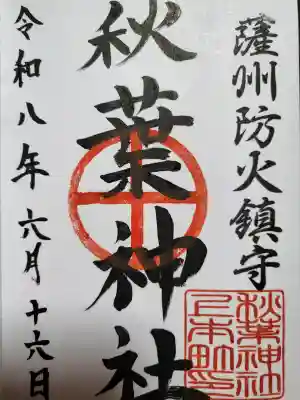 薩州防火鎮守
秋葉神社
令和八年六月十六日
秋葉神社
上本町印